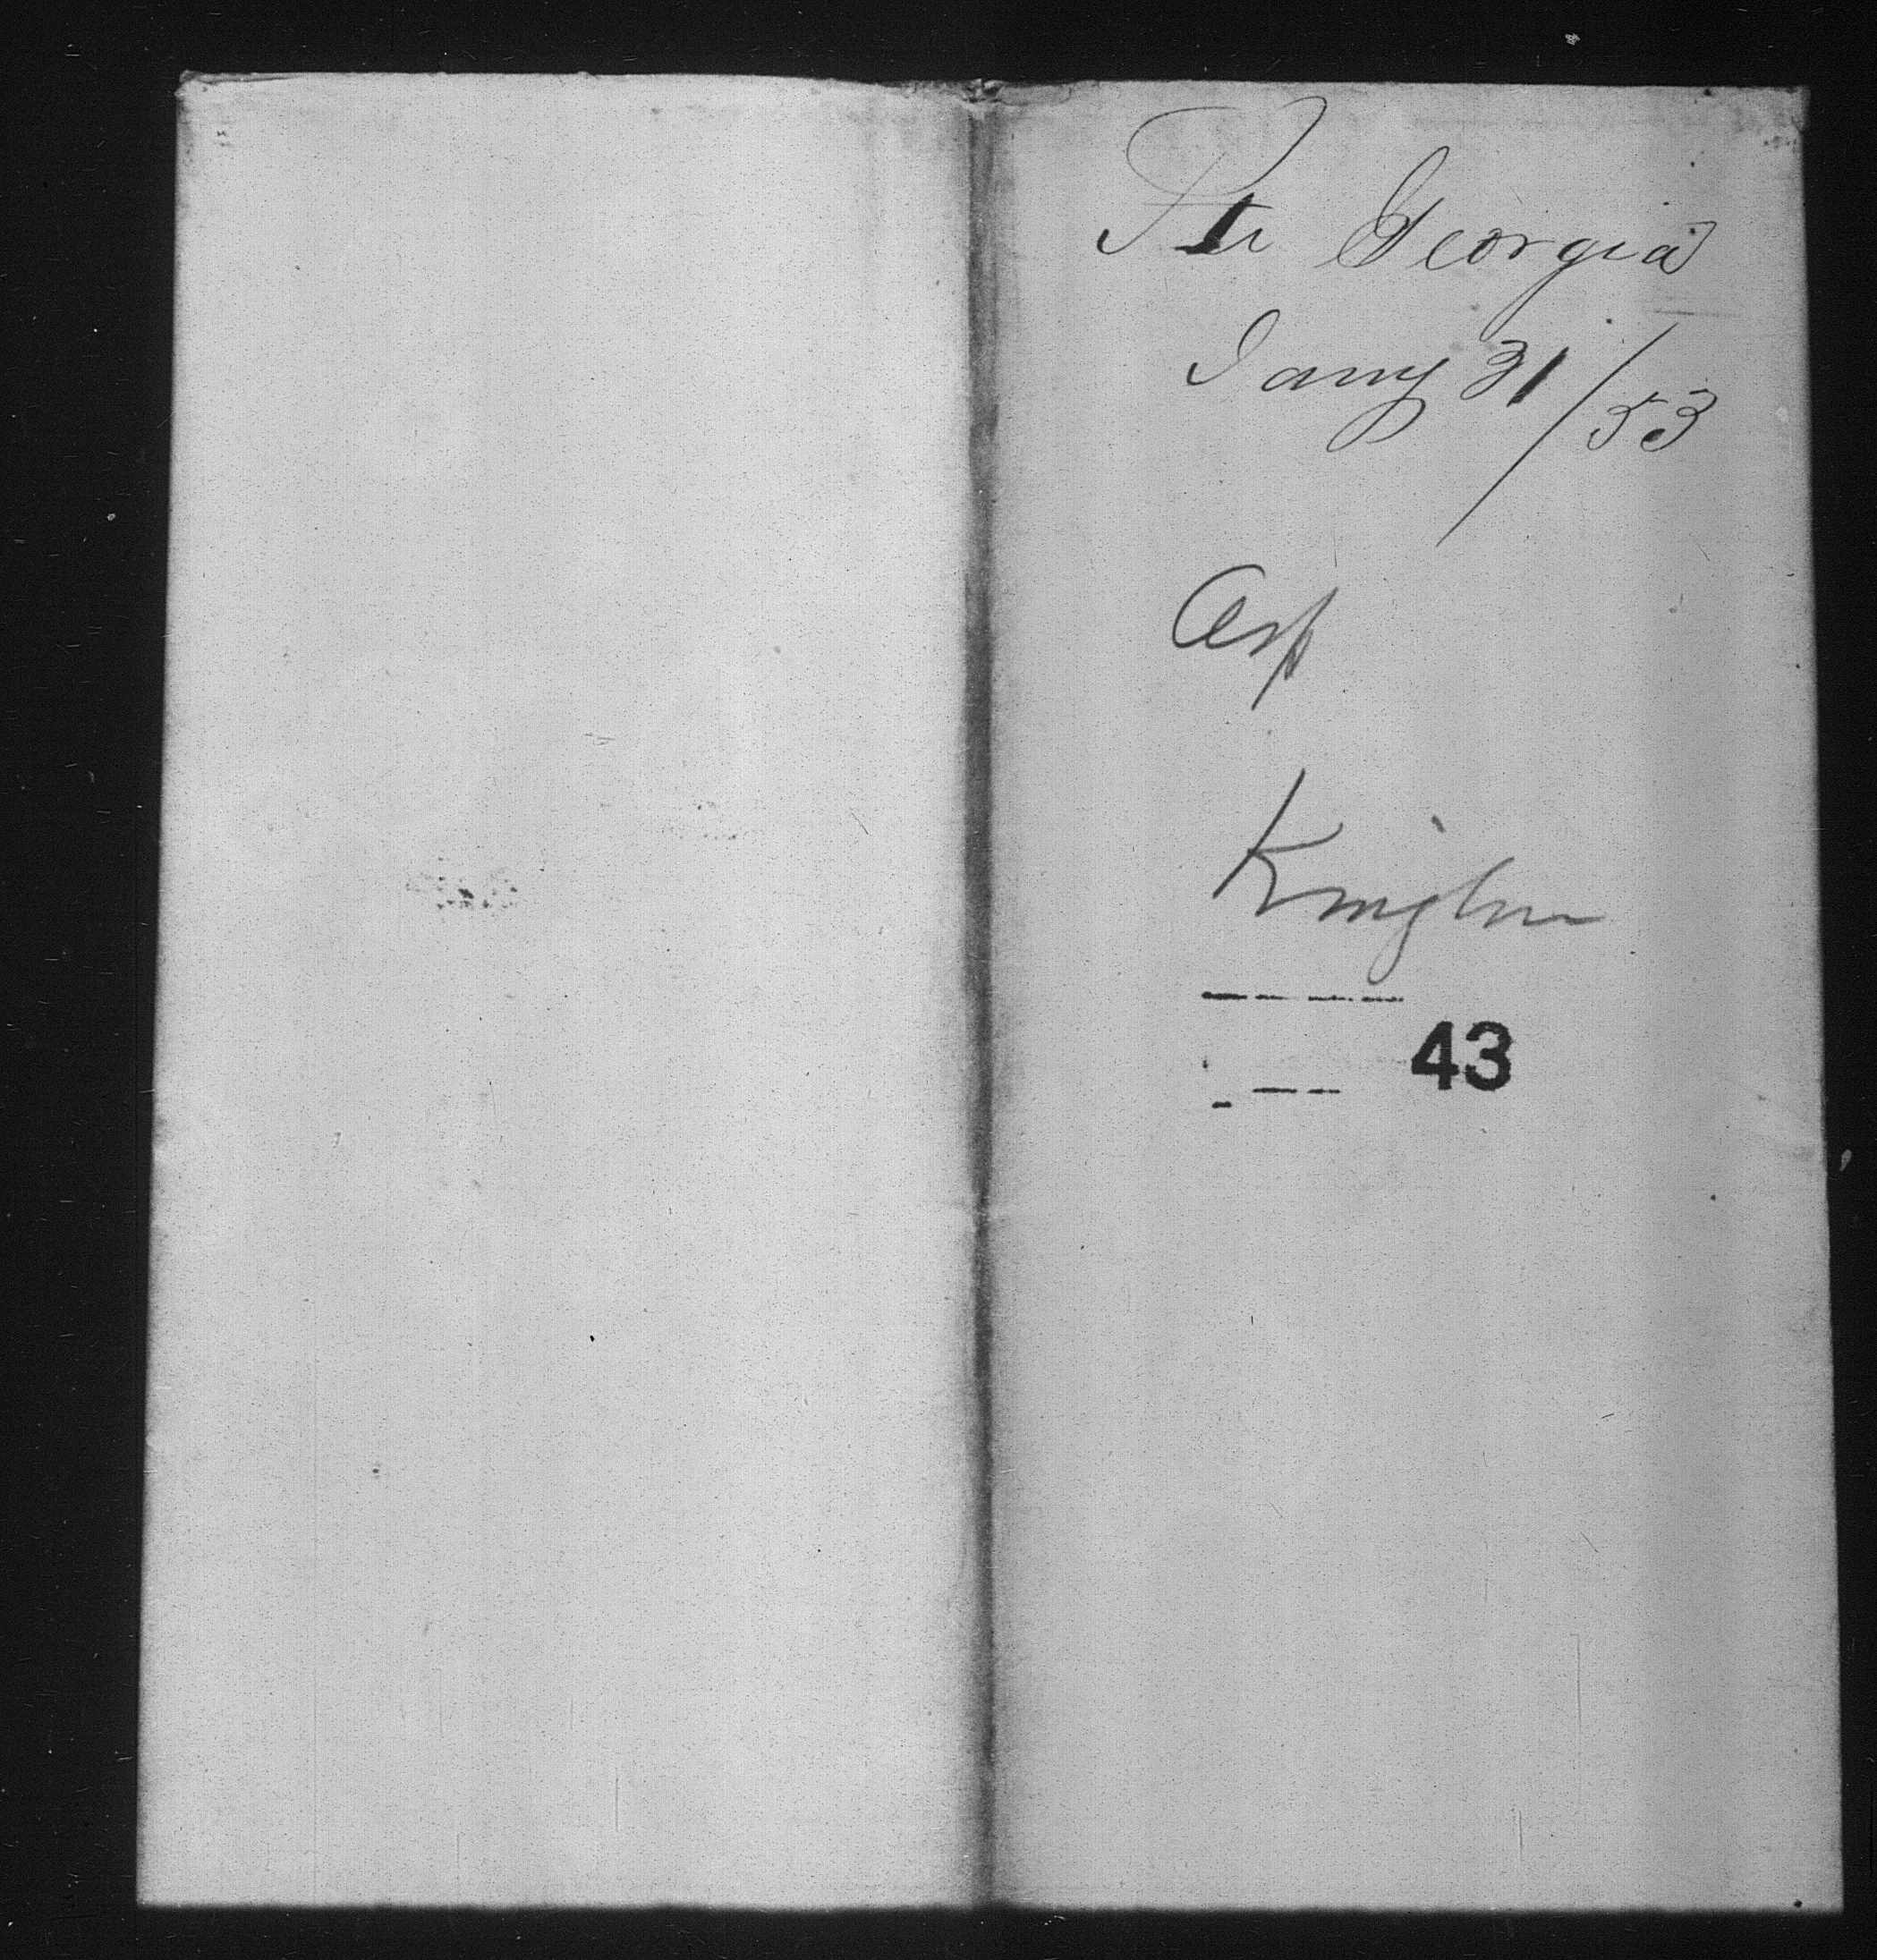 Str Georgia
Jany 31/53
Asp
Kingston
43